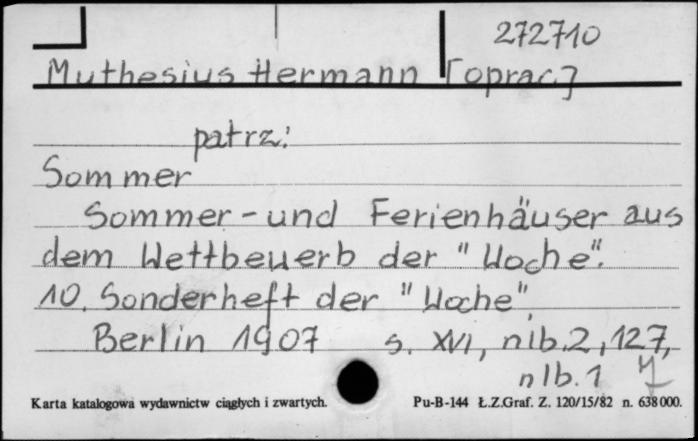 272710
Muthesius Hermann [oprac.]
patrz:
Sommer
Sommer- und Ferienhäuser aus
dem Wettbewerb der "Woche".
10. Sonderheft der "Woche".
Berlin 1907 s. XVI, nlb.2, 127,
nlb.1
Karta katalogowa wydawnictw ciągłych i zwartych. Pu-B-144 Ł.Z.Graf. Z. 120/15/82 n. 638000.